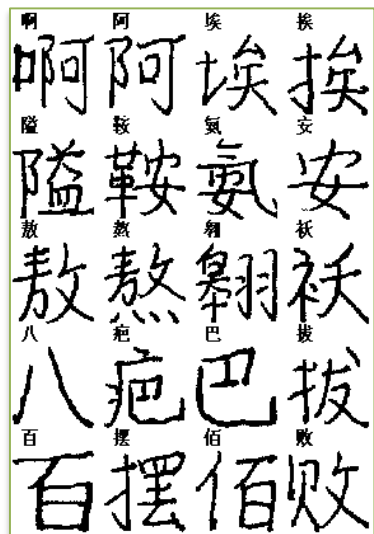 啊 阿 埃 挨
啊 阿 埃 挨
隘 鞍 氨 安
隘 鞍 氨 安
敖 熬 翱 袄
敖 熬 翱 袄
八 疤 巴 拔
八 疤 巴 拔
百 摆 佰 败
百 摆 佰 败